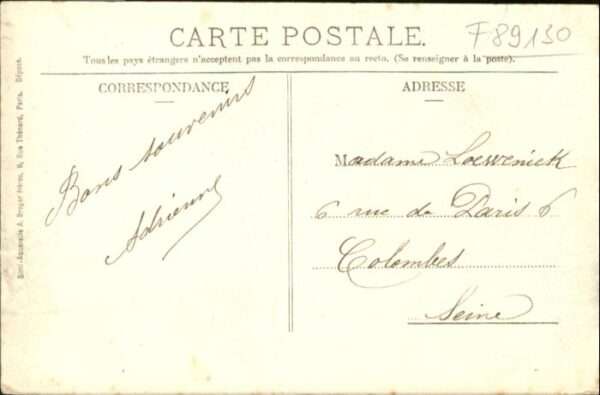 F89130
CARTE POSTALE.
Tous les pays étrangers n'acceptent pas la correspondance au recto. (Se renseigner à la poste).
CORRESPONDANCE
ADRESSE
Bons souvenirs
Adrienne
Madame Loewenick
6 rue de Paris 6
Colombes
Seine
Breger Frères, 9, Rue Thénard, Paris. Déposé.